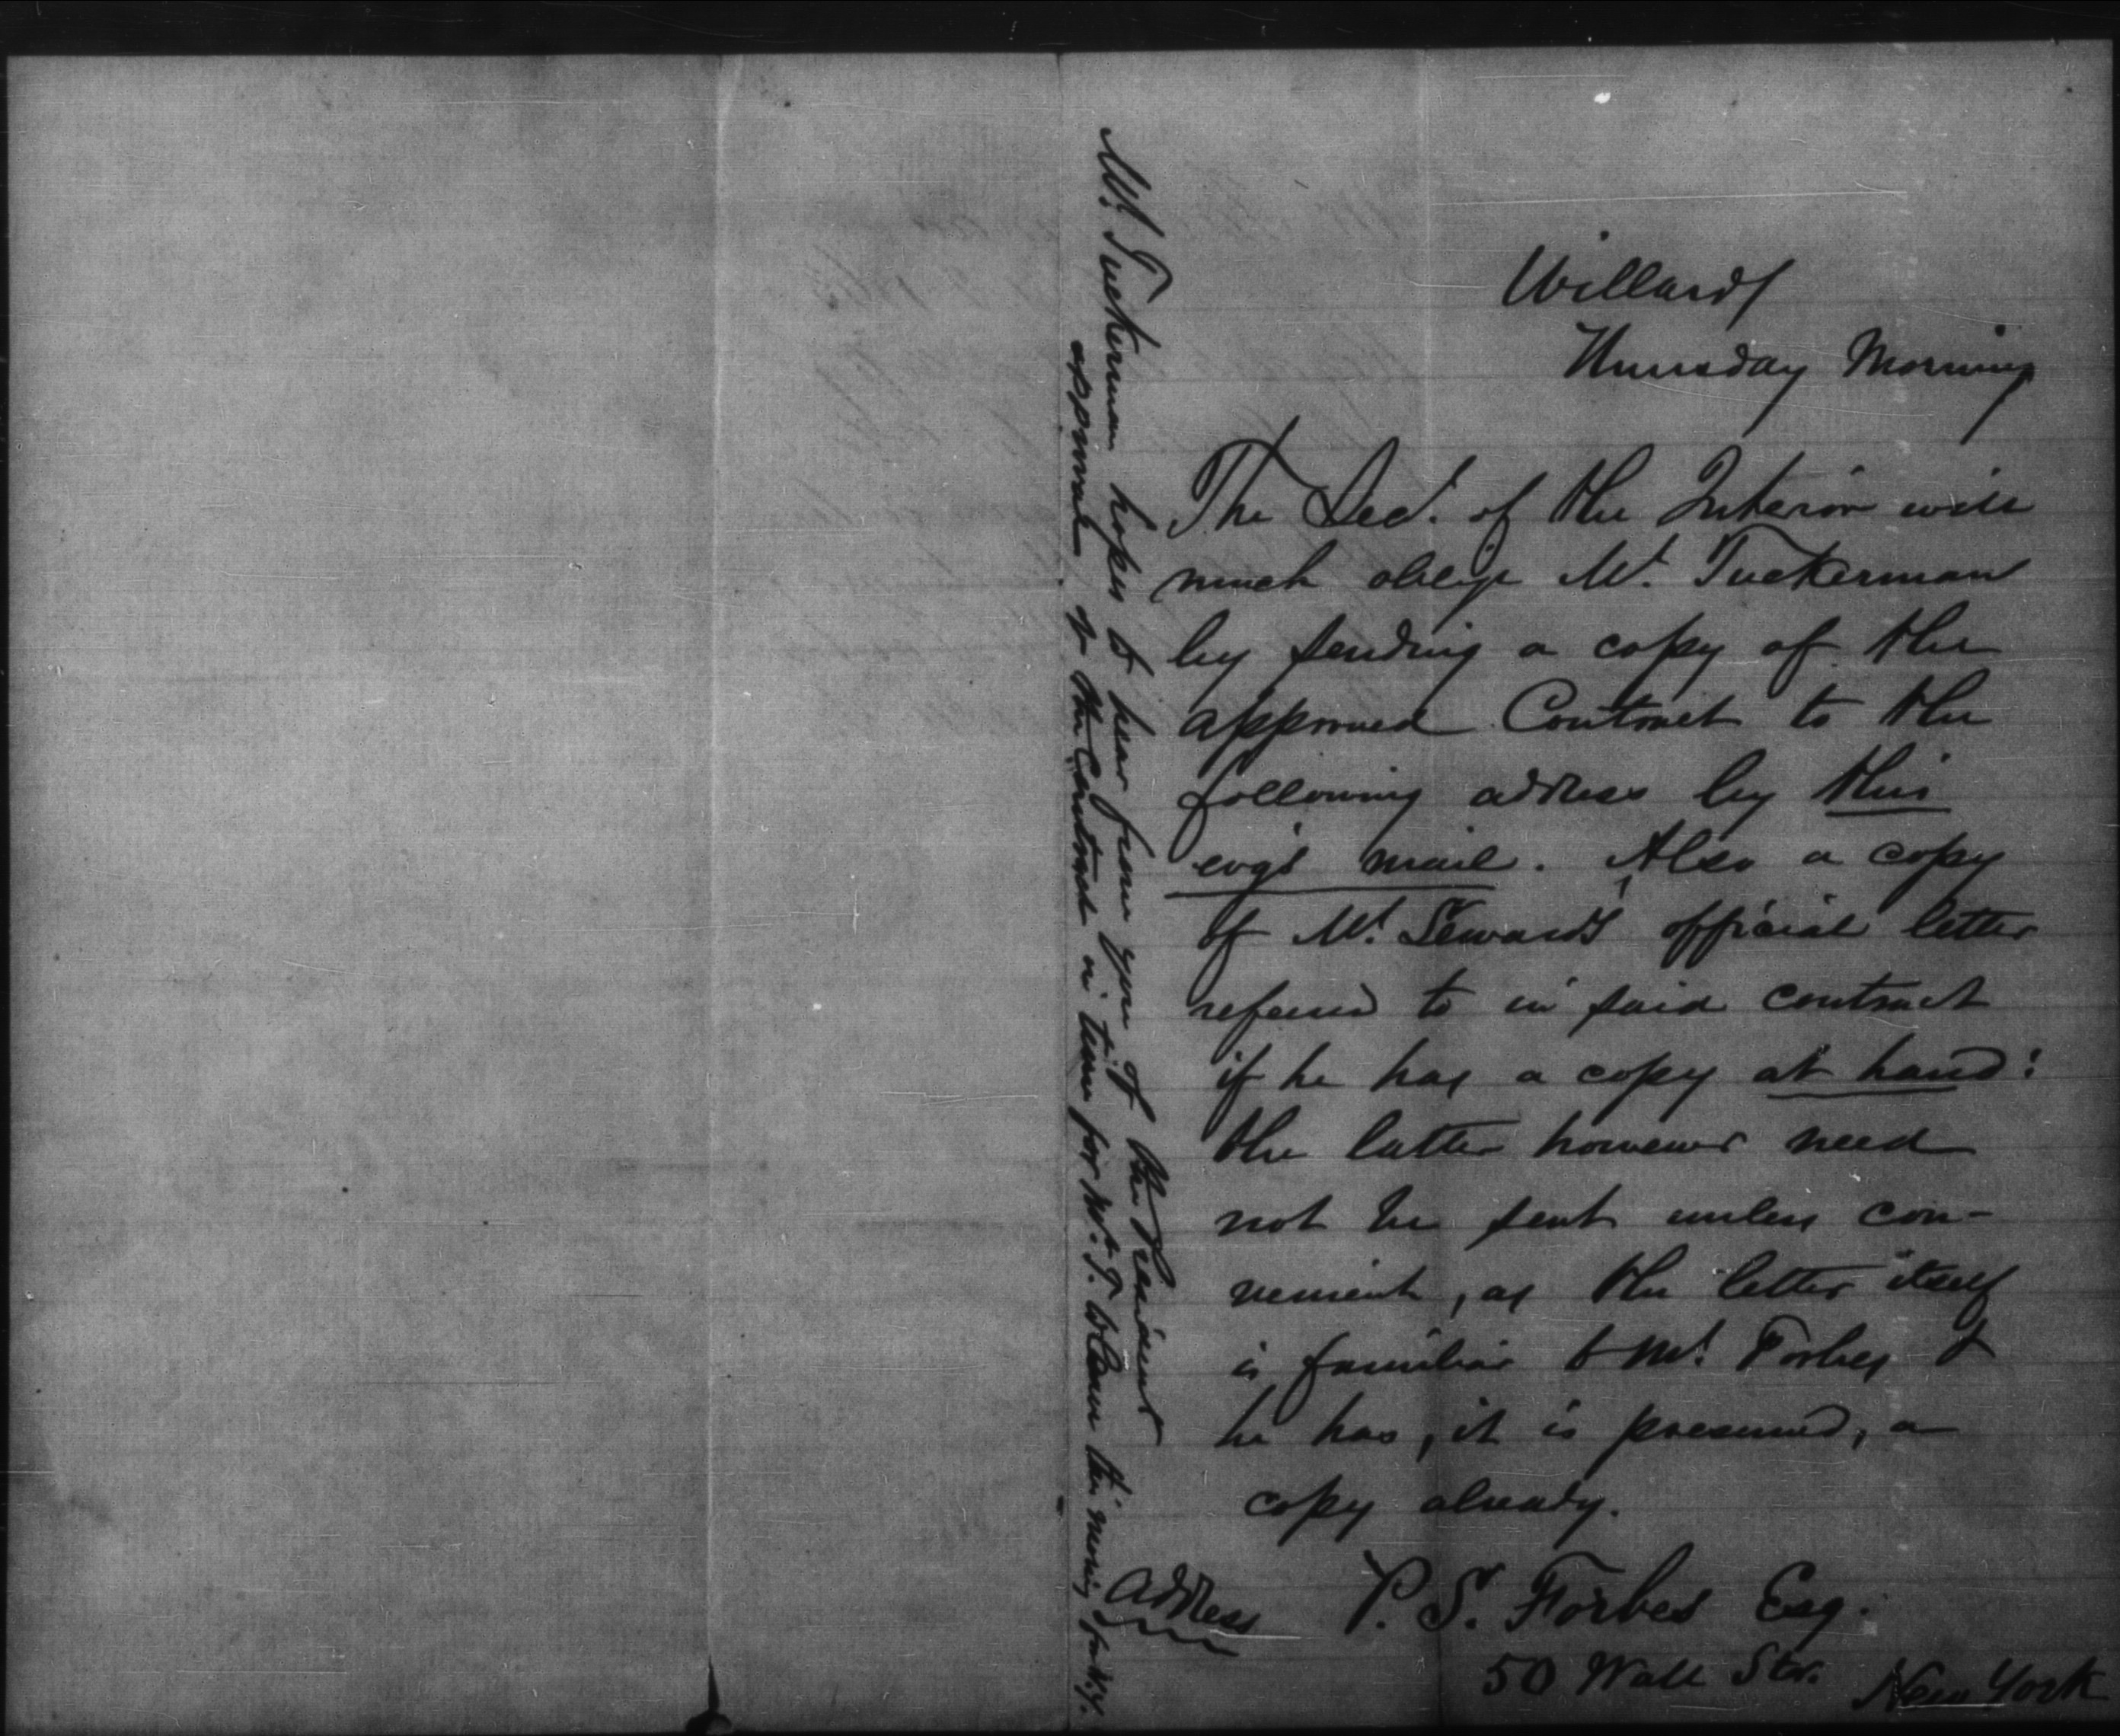 Willards
Thursday Morning
The Sec'. of the Interior will
much oblige Mr. Tuckerman
by sending a copy of the
approved Contract to the
following address by this
evg's mail. Also a copy
of Mr. Seward's official letter
referred to in said contract
if he has a copy at hand:
the latter however need
not be sent unless con-
venient, as the letter itself
is familiar to Mr. Forbes &
he has, it is presumed, a
copy already.
Address P. S. Forbes Esq.
50 Wall Str. New York
Mr. Tuckerman hopes to hear from you of the President's
approval of the Contract in time for Mr. T. to leave this morning for N.Y.